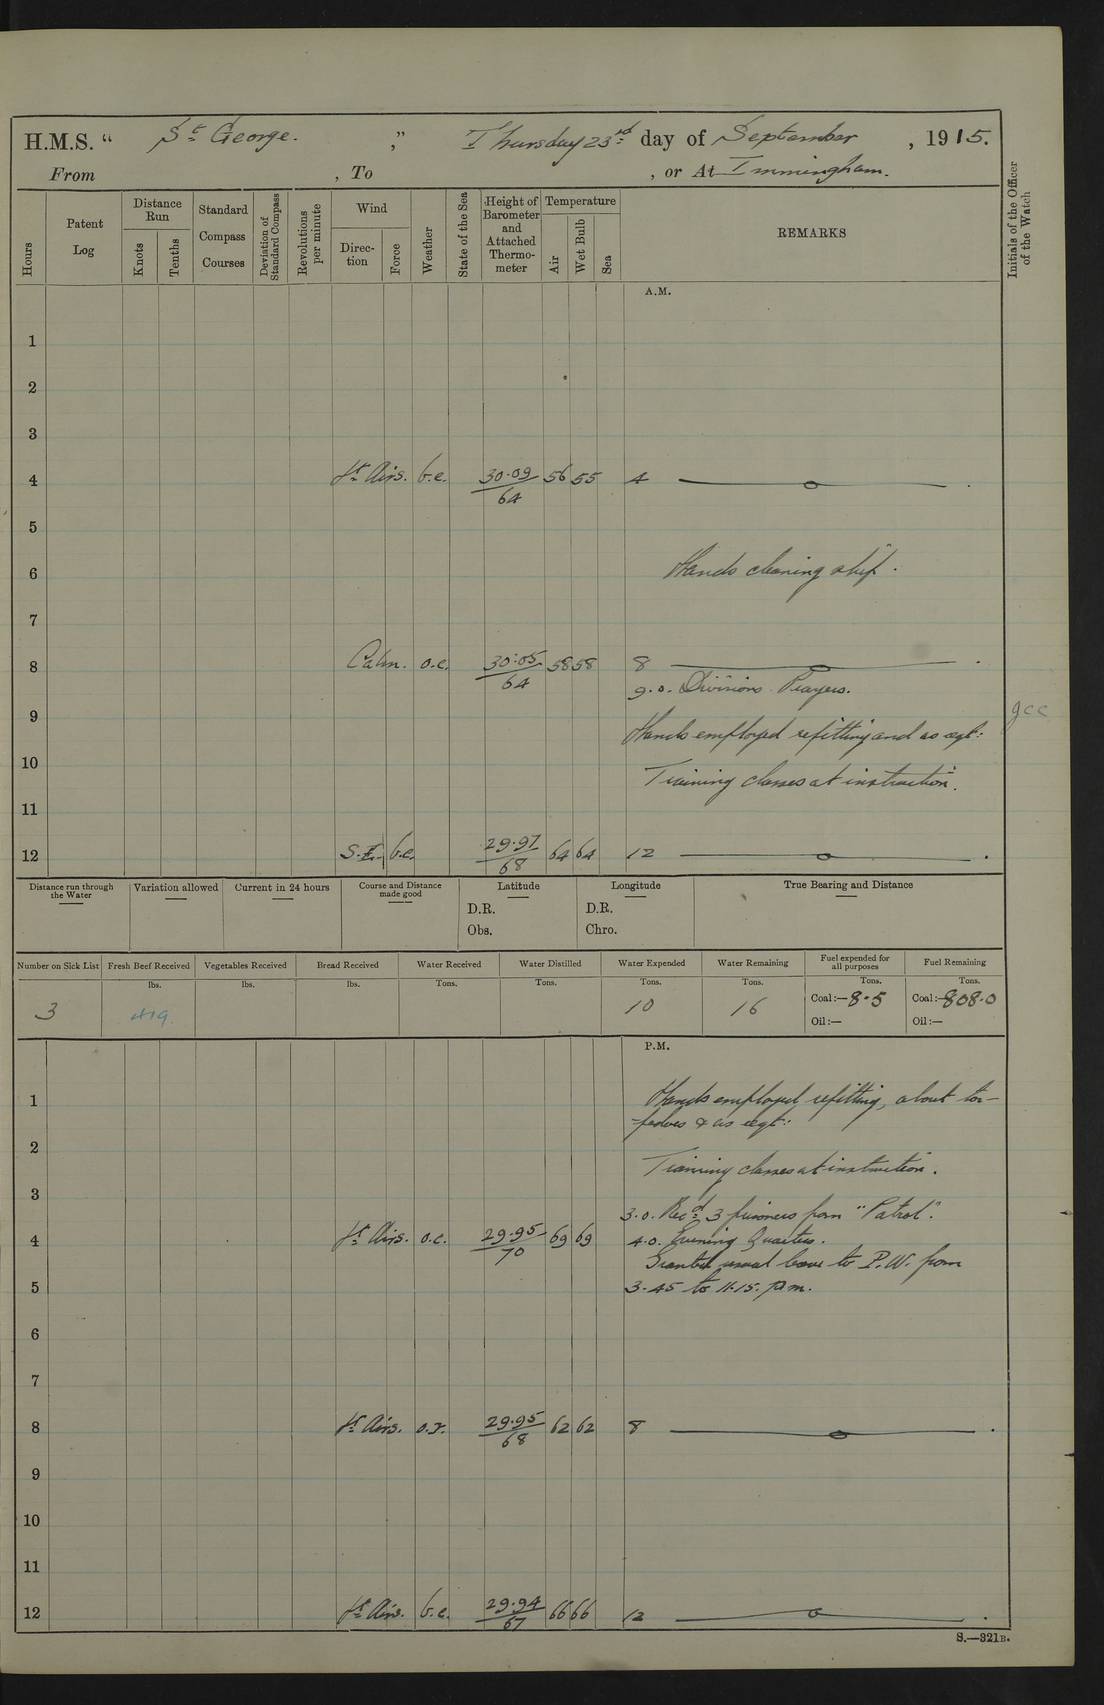 H.M.S. “ St George. ” Thursday 23rd day of September , 1915.
From , To , or At Immingham.
Hours
Patent Log
Distance Run
Knots
Tenths
Standard Compass Courses
Deviation of Standard Compass
Revolutions per minute
Wind
Direc-tion
Force
Weather
State of the Sea
Height of Barometer and Attached Thermo-meter
Temperature
Air
Wet Bulb
Sea
REMARKS
Initials of the Officer of the Watch
A.M.
1
2
3
4 Lt Airs. b.c. 30.09/64 56 55 4
5
6 Hands cleaning ship.
7
8 Calm. o.c. 30.05/64 58 58 8
9.0. Divisions. Prayers.
9 Hands employed refitting and as reqt:
10 Training classes at instruction.
11
12 S.E. b.c. 29.97/68 64 64 12
Distance run through the Water
Variation allowed
Current in 24 hours
Course and Distance made good
Latitude
D.R.
Obs.
Longitude
D.R.
Chro.
True Bearing and Distance
Number on Sick List
3
Fresh Beef Received
lbs.
419
Vegetables Received
lbs.
Bread Received
lbs.
Water Received
Tons.
Water Distilled
Tons.
Water Expended
Tons.
10
Water Remaining
Tons.
16
Fuel expended for all purposes
Tons.
Coal:—8.5
Oil:—
Fuel Remaining
Tons.
Coal:—808.0
Oil:—
P.M.
1 Hands employed refitting, about tor-
-pedoes & as reqt:
2 Training classes at instruction.
3 3.0. Recd 3 prisoners from "Patrol".
4 Lt Airs. o.c. 29.95/70 69 69 4.0. Evening Quarters.
Granted usual leave to P.W. from
5 3.45 to 11.15. p.m.
6
7
8 Lt Airs. o.r. 29.95/68 62 62 8
9
10
11
12 Lt Airs. b.c. 29.94/67 66 66 12
S.—321B.